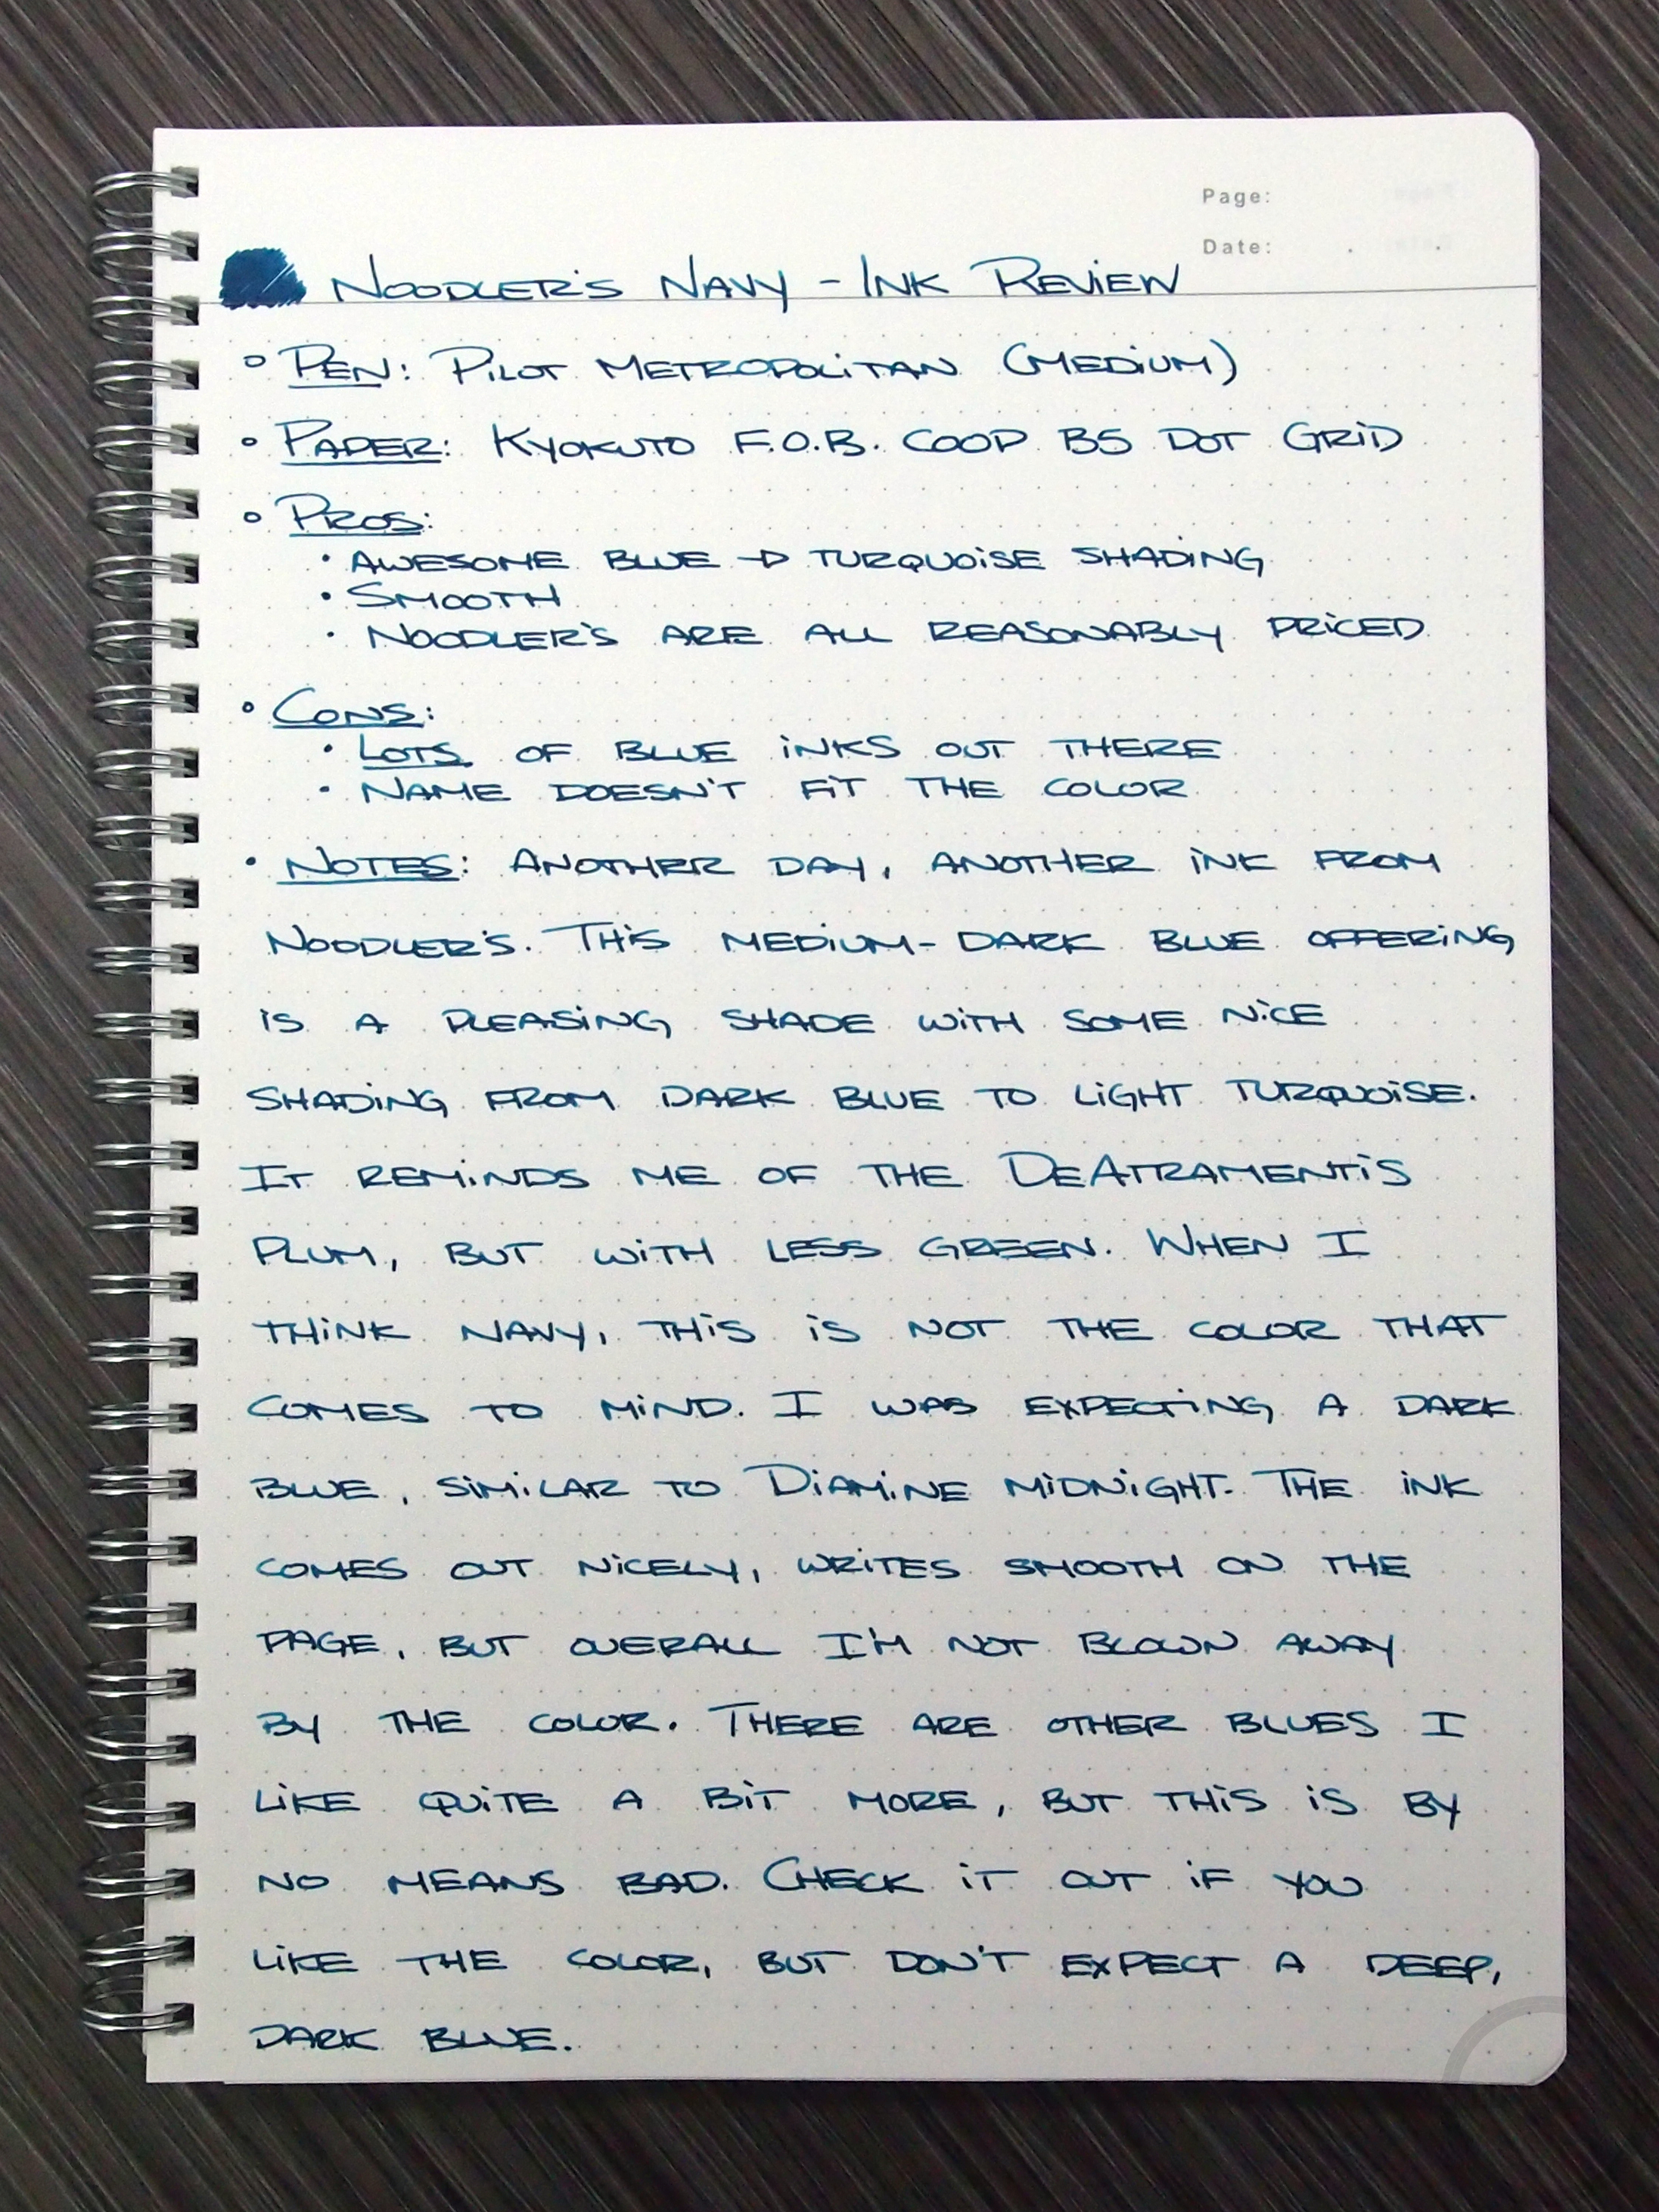 Page:
Date: . .
NOODLER'S NAVY - INK REVIEW
◦ PEN: PILOT METROPOLITAN (MEDIUM)
◦ PAPER: KYOKUTO F.O.B. COOP B5 DOT GRID
◦ PROS:
• AWESOME BLUE → TURQUOISE SHADING
• SMOOTH
• NOODLER'S ARE ALL REASONABLY PRICED
• CONS:
• LOTS OF BLUE INKS OUT THERE
• NAME DOESN'T FIT THE COLOR
• NOTES: ANOTHER DAY, ANOTHER INK FROM
NOODLER'S. THIS MEDIUM-DARK BLUE OFFERING
IS A PLEASING SHADE WITH SOME NICE
SHADING FROM DARK BLUE TO LIGHT TURQUOISE.
IT REMINDS ME OF THE DEATRAMENTIS
PLUM, BUT WITH LESS GREEN. WHEN I
THINK NAVY, THIS IS NOT THE COLOR THAT
COMES TO MIND. I WAS EXPECTING A DARK
BLUE, SIMILAR TO DIAMINE MIDNIGHT. THE INK
COMES OUT NICELY, WRITES SMOOTH ON THE
PAGE, BUT OVERALL I'M NOT BLOWN AWAY
BY THE COLOR. THERE ARE OTHER BLUES I
LIKE QUITE A BIT MORE, BUT THIS IS BY
NO MEANS BAD. CHECK IT OUT IF YOU
LIKE THE COLOR, BUT DON'T EXPECT A DEEP,
DARK BLUE.